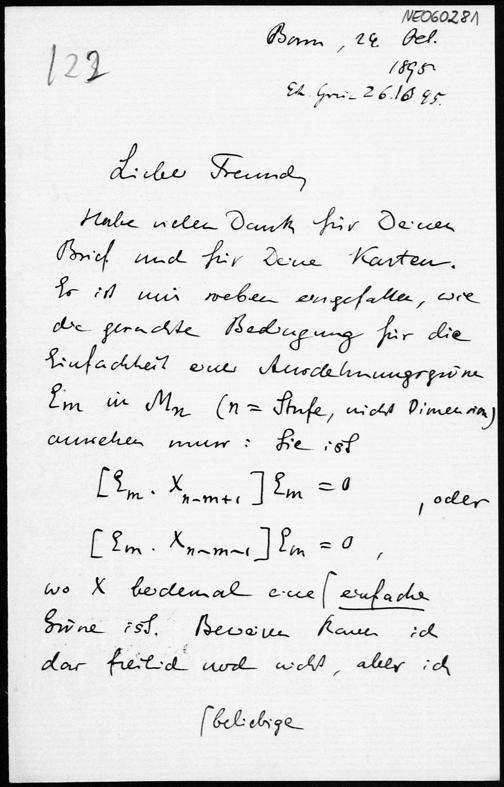 NE060281
122
Bonn, 24 Oct.
1895
26.10 95.
Lieber Freund,
Habe vielen Dank für Deinen
Brief und für Deine Karten.
Es ist mir soeben eingefallen, wie
die gesuchte Bedingung für die
Einfachheit einer Ausdehnungsgrösse
Em in Mn (n = Stufe, nicht Dimension)
aussehen muss: Sie ist
[Em . Xn-m+1] Em = 0
, oder
[Em . Xn-m-1] Em = 0 ,
wo X beidemal eine ⌈ einfache
Grösse ist. Beweisen kann ich
das freilich noch nicht, aber ich
⌈beliebige